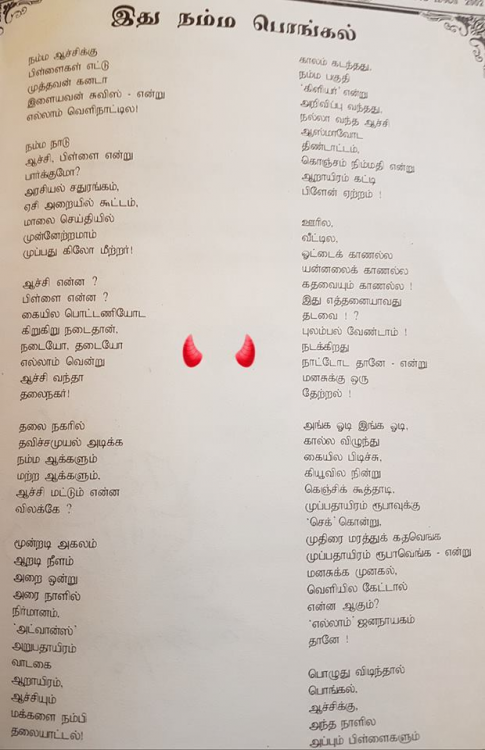 இது நம்ம பொங்கல்
நம்ம ஆச்சிக்கு
பிள்ளைகள் எட்டு
முத்தவன் கனடா
இளையவன் சுவிஸ் - என்று
எல்லாம் வெளிநாட்டில!
நம்ம நாடு
ஆச்சி, பிள்ளை என்று
பார்க்குமோ?
அரசியல் சதுரங்கம்,
ஏசி அறையில் கூட்டம்,
மாலை செய்தியில்
முன்னேற்றமாம்
முப்பது கிலோ மீற்றர்!
ஆச்சி என்ன ?
பிள்ளை என்ன ?
கையில பொட்டணியோட
கிறுகிறு நடைதான்,
நடையோ, தடையோ
எல்லாம் வென்று
ஆச்சி வந்தா
தலைநகர்!
தலை நகரில்
தவிச்சமுயல் அடிக்க
நம்ம ஆக்களும்,
மற்ற ஆக்களும்,
ஆச்சி மட்டும் என்ன
விலக்கே ?
மூன்றடி அகலம்
ஆறடி நீளம்
அறை ஒன்று
அரை நாளில்
நிர்மானம்.
'அட்வான்ஸ்'
அறுபதாயிரம்
வாடகை
ஆறாயிரம்,
ஆச்சியும்
மக்களை நம்பி
தலையாட்டல்!
காலம் கடந்தது,
நம்ம பகுதி
'கிளியர்' என்று
அறிவிப்பு வந்தது,
நல்லா வந்த ஆச்சி
ஆஸ்மாவோட
திண்டாட்டம்,
கொஞ்சம் நிம்மதி என்று
ஆறாயிரம் கட்டி
பிளேன் ஏற்றம் !
ஊரில,
வீட்டில,
ஓட்டைக் காணல்ல
யன்னலைக் காணல்ல
கதவையும் காணல்ல !
இது எத்தனையாவது
தடவை ! ?
புலம்பல் வேண்டாம் !
நடக்கிறது
நாட்டோட தானே - என்று
மனசுக்கு ஒரு
தேற்றல் !
அங்க ஓடி இங்க ஓடி,
கால்ல விழுந்து
கையில பிடிச்சு,
கியூவில நின்று
கெஞ்சிக் கூத்தாடி,
முப்பதாயிரம் ரூபாவுக்கு
'செக்' கொன்று,
முதிரை மரத்துக் கதவெங்க
முப்பதாயிரம் ரூபாவெங்க - என்று
மனசுக்க முனகல்,
வெளியில கேட்டால்
என்ன ஆகும்?
'எல்லாம்' ஜனநாயகம்
தானே !
பொழுது விடிந்தால்
பொங்கல்,
ஆச்சிக்கு,
அந்த நாளில
அப்பும் பிள்ளைகளும்